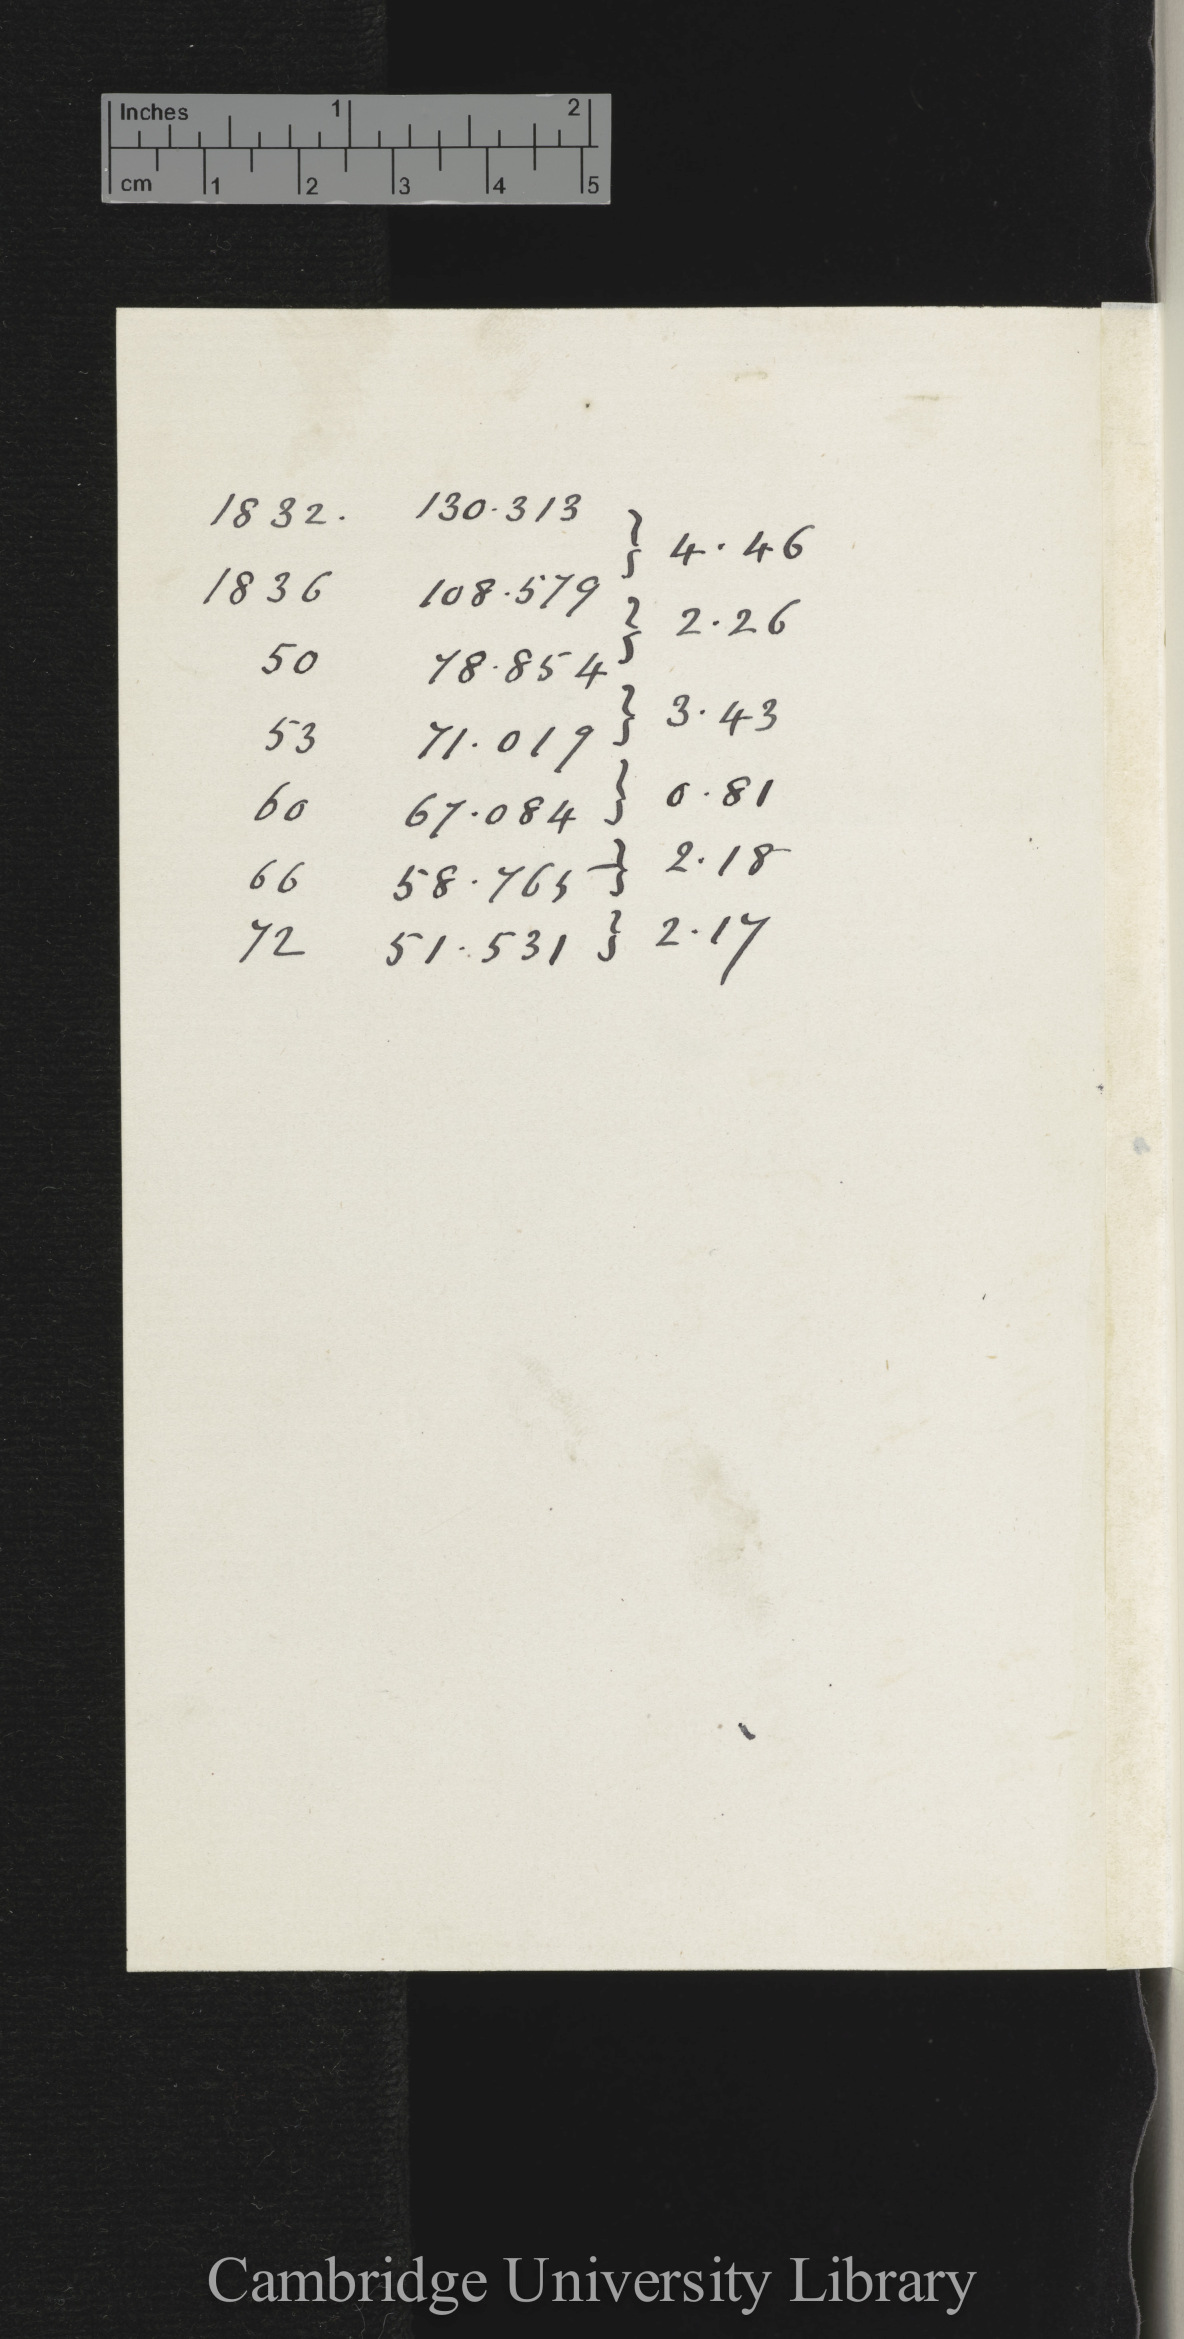 Inches 1 2
cm 1 2 3 4 5
1832. 130.313
} 4.46
1836 108.579
} 2.26
50 78.854
} 3.43
53 71.019
} 0.81
60 67.084
} 2.18
66 58.765
} 2.17
72 51.531
Cambridge University Library